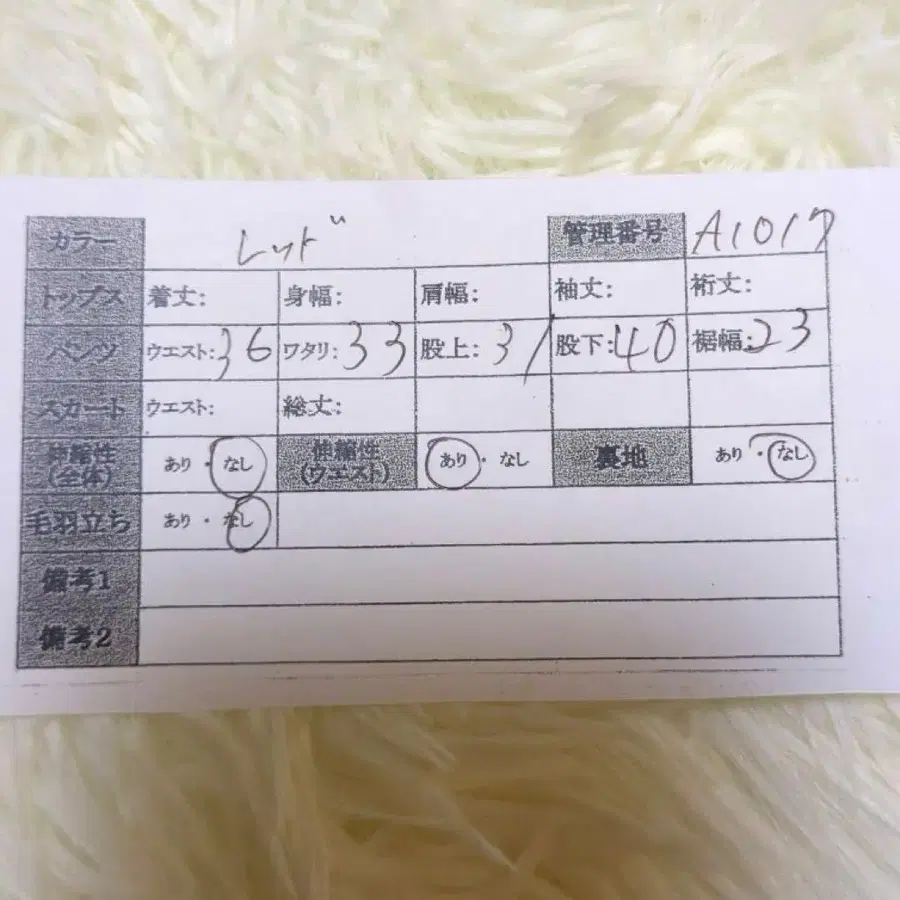 カラー レッド 管理番号 A1017
トップス 着丈: 身幅: 肩幅: 袖丈: 裄丈:
パンツ ウエスト:36 ワタリ:33 股上:31 股下:40 裾幅:23
スカート ウエスト: 総丈:
伸縮性(全体) あり・なし 伸縮性(ウエスト) あり・なし 裏地 あり・なし
毛羽立ち あり・なし
備考1
備考2